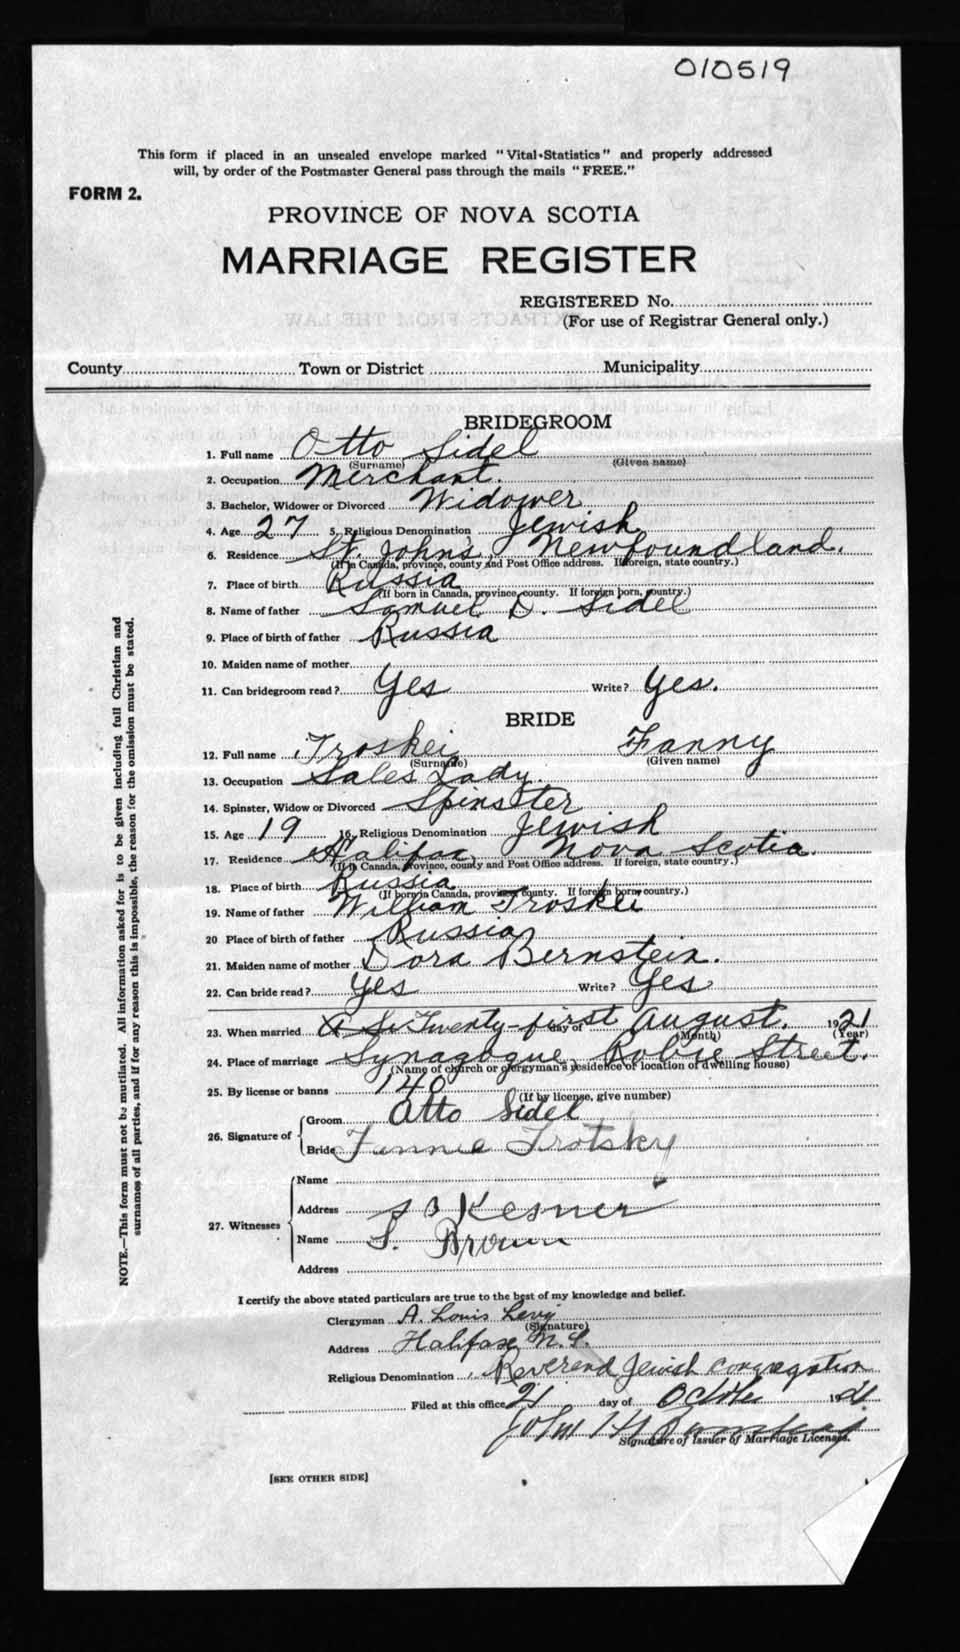 010519
This form if placed in an unsealed envelope marked "Vital Statistics" and properly addressed
will, by order of the Postmaster General pass through the mails "FREE."
FORM 2.
PROVINCE OF NOVA SCOTIA
MARRIAGE REGISTER
REGISTERED No.
(For use of Registrar General only.)
County Town or District Municipality
BRIDEGROOM
1. Full name Otto Sidel
(Surname) (Given name)
2. Occupation Merchant.
3. Bachelor, Widower or Divorced Widower
4. Age 27 5. Religious Denomination Jewish
6. Residence St. John's, Newfoundland.
(If in Canada, province, county and Post Office address. If foreign, state country.)
7. Place of birth Russia
(If born in Canada, province, county. If foreign born, country.)
8. Name of father Samuel D. Sidel
9. Place of birth of father Russia
10. Maiden name of mother
11. Can bridegroom read? Yes Write? Yes.
BRIDE
12. Full name Troskei Fanny
(Surname) (Given name)
13. Occupation Sales Lady.
14. Spinster, Widow or Divorced Spinster
15. Age 19 16. Religious Denomination Jewish
17. Residence Halifax, Nova Scotia.
(If in Canada, province, county and Post Office address. If foreign, state country.)
18. Place of birth Russia
(If born in Canada, province, county. If foreign born, country.)
19. Name of father William Troskei
20 Place of birth of father Russia
21. Maiden name of mother Dora Bernstein.
22. Can bride read? Yes Write? Yes
23. When married Twenty-first day of August. 1921
(Month) (Year)
24. Place of marriage Synagogue, Robie Street.
(Name of church or clergyman's residence or location of dwelling house)
25. By license or banns 140
(If by license, give number)
26. Signature of Groom Otto Sidel
Bride Fannie Trotsky
27. Witnesses
Name
Address Kesner
Name S. Brown
Address
I certify the above stated particulars are true to the best of my knowledge and belief.
Clergyman A. Louis Levy
(Signature)
Address Halifax N.S.
Religious Denomination Reverend Jewish Congregation
Filed at this office 21 day of October 1921
John H
Signature of Issuer of Marriage Licenses.
[SEE OTHER SIDE]
NOTE.—This form must not be mutilated. All information asked for is to be given including full Christian and
surnames of all parties, and if for any reason this is impossible, the reason for the omission must be stated.